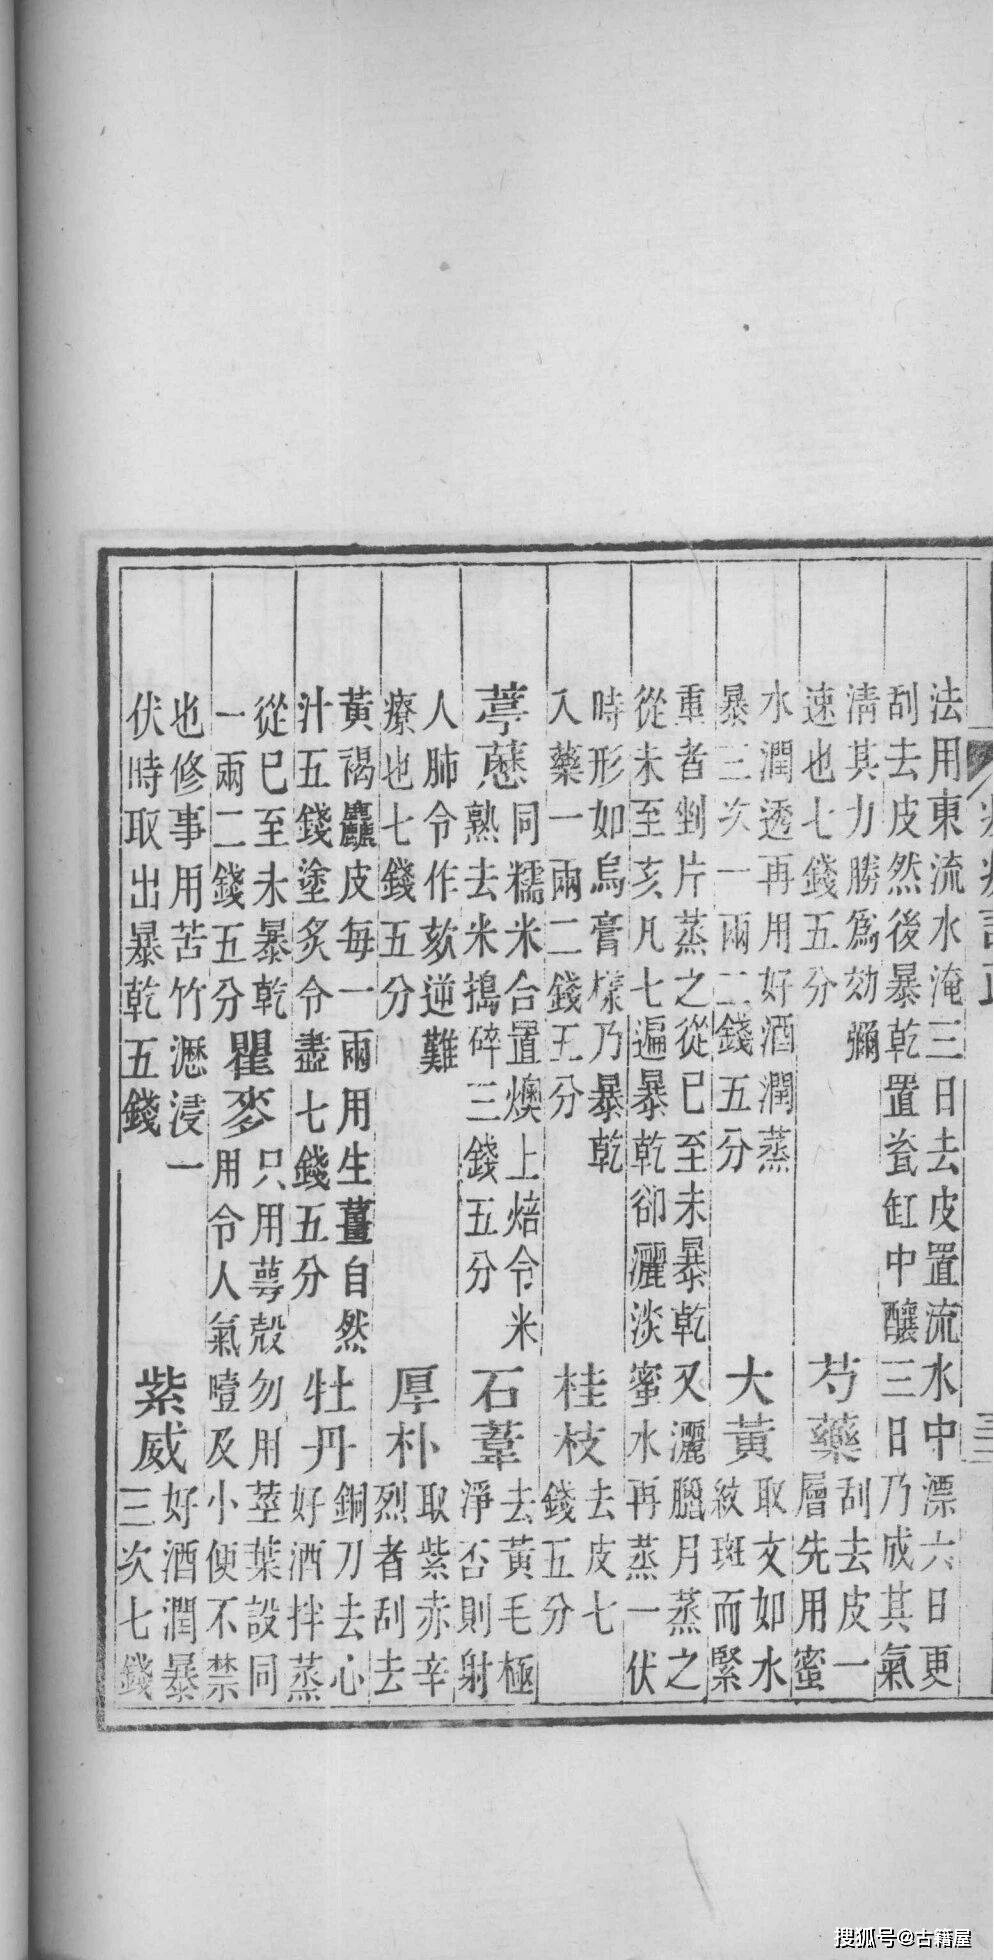 法用東流水淹三日去皮置流水中漂六日更
刮去皮然後暴乾置瓮缸中釀三日乃成其氣
清其力勝爲効彌
速也七錢五分
芍藥
刮去皮一
層先用蜜
水潤透再用好酒潤蒸
暴三次一兩二錢五分
大黃
取文如水
紋斑而緊
重者剉片蒸之從巳至未暴乾又灑臘月蒸之
從未至亥凡七遍暴乾卻灑淡蜜水再蒸一伏
時形如烏膏樣乃暴乾
入藥一兩二錢五分
桂枝
去皮七
錢五分
葶藶
同糯米合置燠上焙令米
熟去米搗碎三錢五分
石葦
去黃毛極
淨否則射
人肺令作欬逆難
療也七錢五分
厚朴
取紫赤辛
烈者刮去
黃褐麤皮每一兩用生薑自然
汁五錢塗炙令盡七錢五分
牡丹
銅刀去心
好酒拌蒸
從巳至未暴乾
一兩二錢五分
瞿麥
只用蕚殼勿用莖葉設同
用令人氣噎及小便不禁
也修事用苦竹瀝浸一
伏時取出暴乾五錢
紫威
好酒潤暴
三次七錢
搜狐号@古籍屋